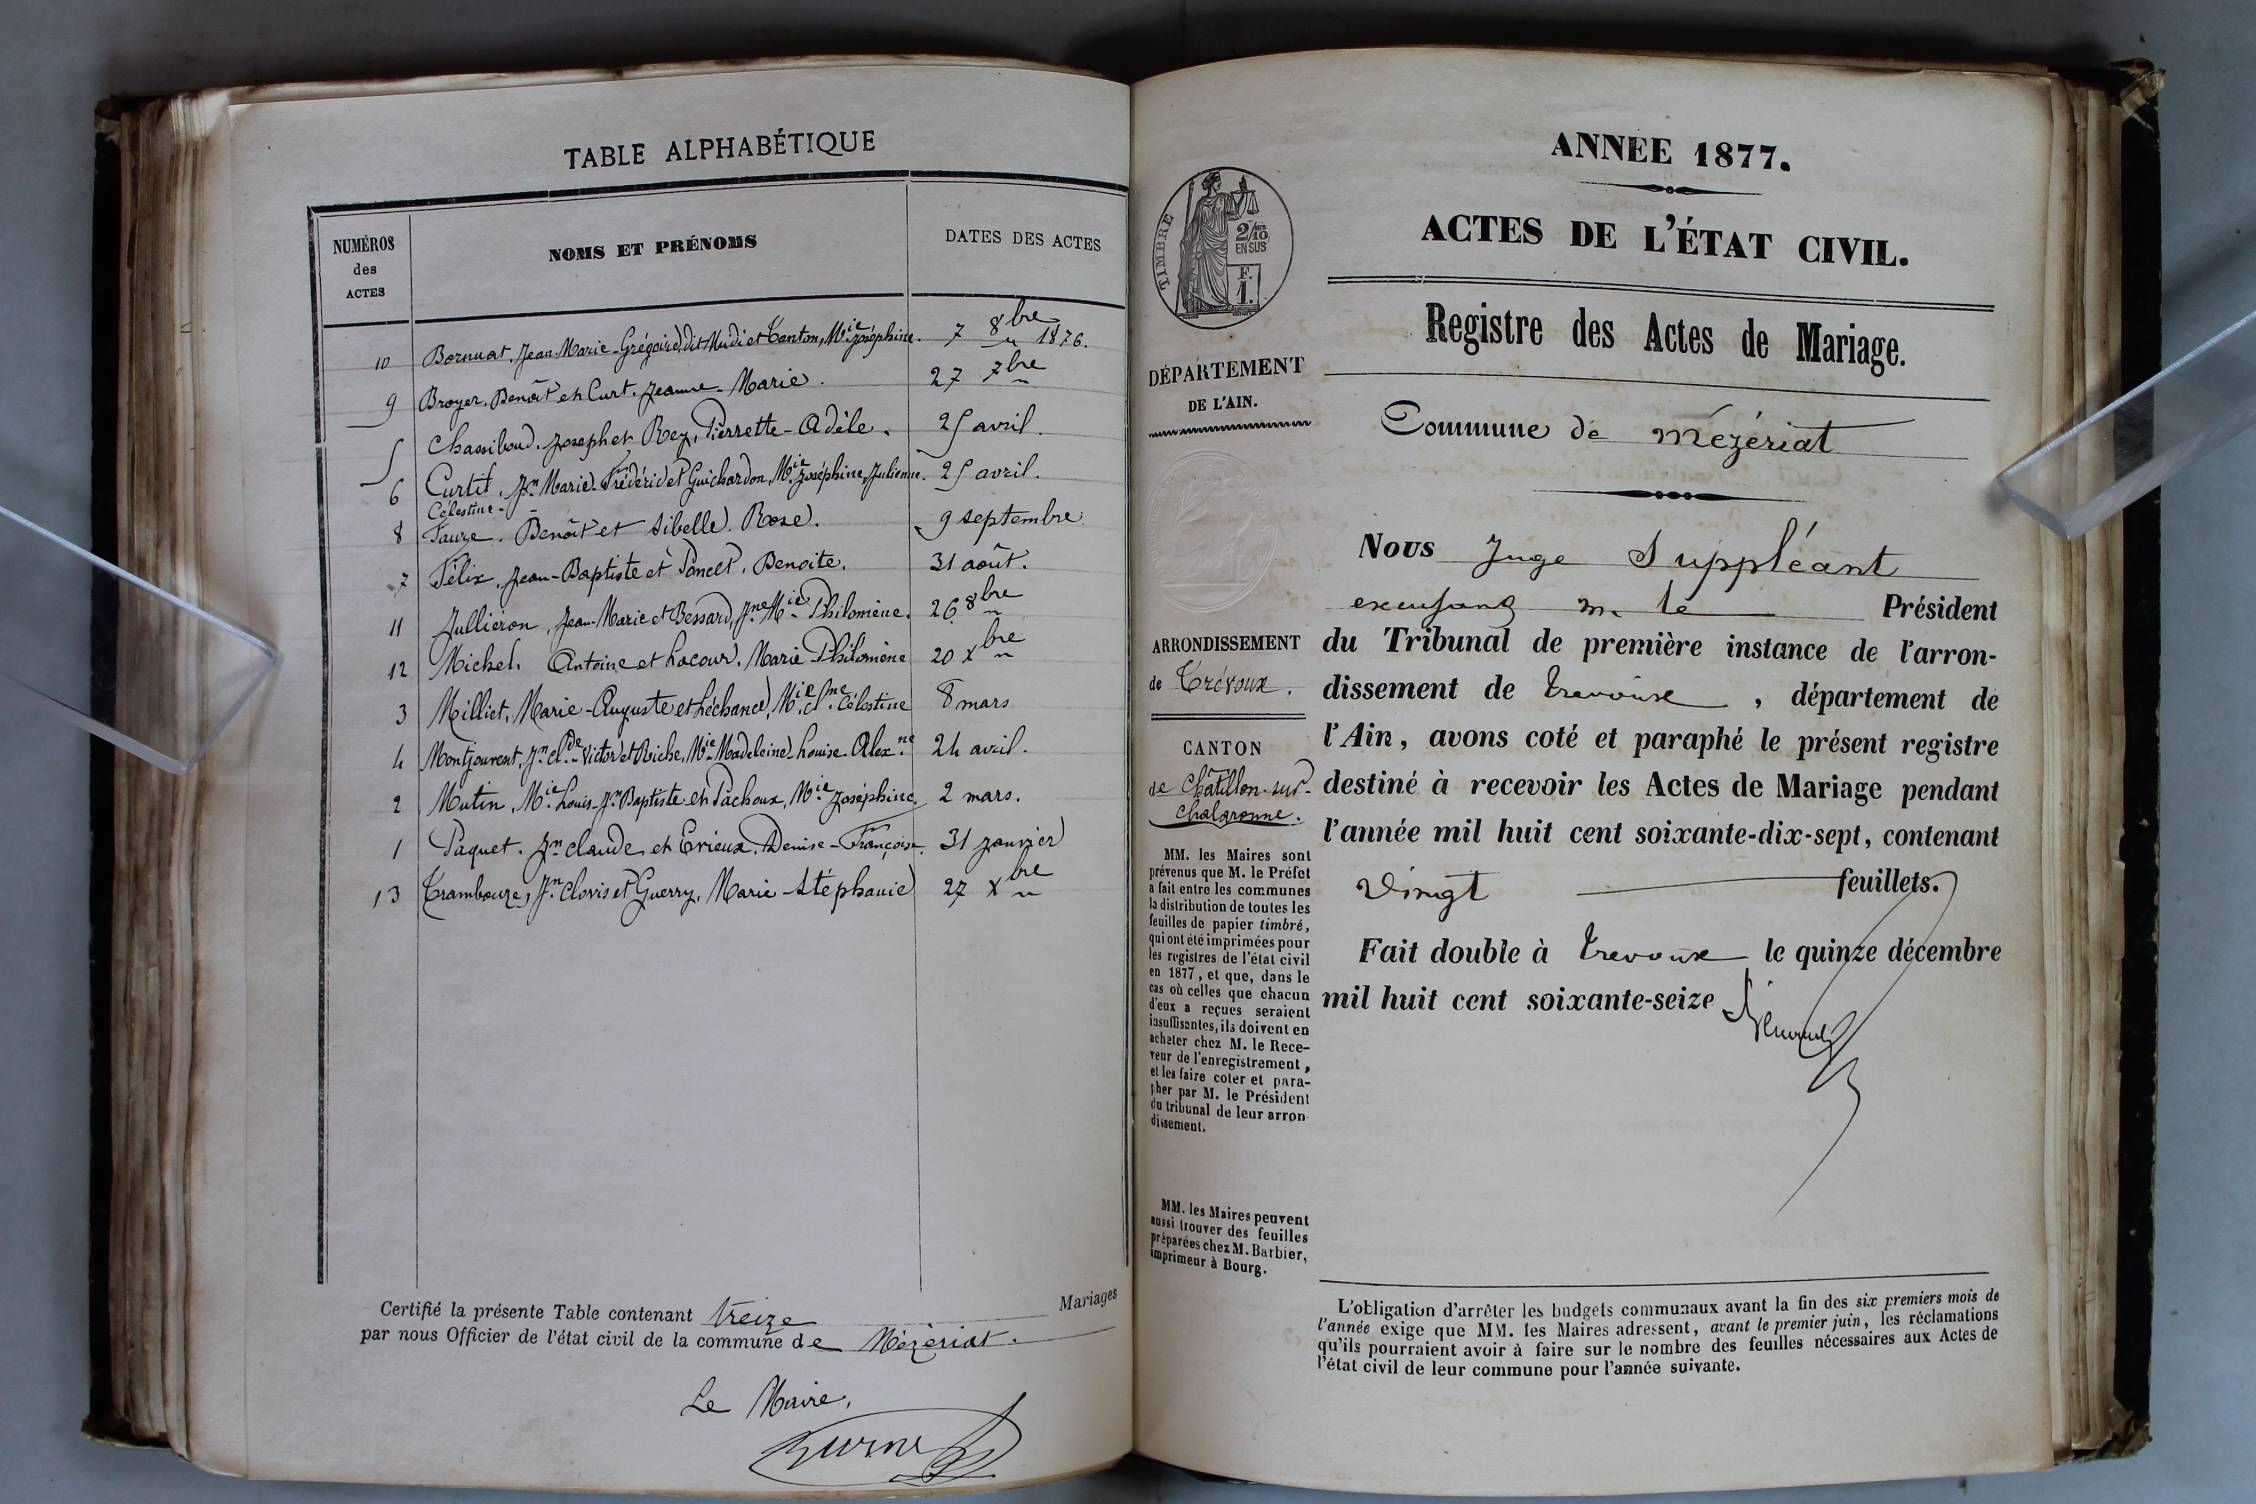 TABLE ALPHABÉTIQUE
NUMÉROS des ACTES
NOMS ET PRÉNOMS
DATES DES ACTES
10 Bornuat, Jean-Marie-Grégoire, dit Mudi et Canton, Mie Joséphine. 7 8bre 1876.
9 Broyer, Benoît et Curt, Jeanne-Marie. 27 7bre
5 Chassiboud, Joseph et Rey, Pierrette-Adèle. 25 avril.
6 Curtit, Jn Marie-Frédéric et Guichardon, Mie Joséphine, Julienne. 25 avril.
Célestine-
8 Fauze, Benoît et Sibelle, Rose. 9 septembre
7 Félix, Jean-Baptiste et Poncet, Benoîte. 31 août.
11 Jullieron, Jean-Marie et Bessard, Jne Mie Philomène. 26 8bre
12 Michel, Antoine et Lacour, Marie Philomène 20 Xbre
3 Milliet, Marie-Auguste et Léchance, Mie Clme Célestine 8 mars
4 Montjouvent, Jn Clde Victor et Riche, Mie Madeleine-Louise-Alexne 24 avril.
2 Mutin, Mie Louis-Jn Baptiste et Pachoux, Mie Joséphine. 2 mars.
1 Paquet, Jn Claude et Evieux, Denise-Françoise. 31 janvier
13 Trambouze, Jn Clovis et Guerry, Marie-Stéphanie 27 Xbre
Certifié la présente Table contenant treize Mariages
par nous Officier de l'état civil de la commune de Mézériat.
Le Maire,
ANNÉE 1877.
ACTES DE L'ÉTAT CIVIL.
Registre des Actes de Mariage.
Commune de Mézériat
TIMBRE
2/10
EN SUS
F.
1.
DÉPARTEMENT
DE L'AIN.
ARRONDISSEMENT
de Trévoux.
CANTON
de Châtillon-sur-
Chalaronne.
MM. les Maires sont
prévenus que M. le Préfet
a fait entre les communes
la distribution de toutes les
feuilles de papier timbré,
qui ont été imprimées pour
les registres de l'état civil
en 1877, et que, dans le
cas où celles que chacun
d'eux a reçues seraient
insuffisantes, ils doivent en
acheter chez M. le Rece-
veur de l'enregistrement,
et les faire coter et para-
pher par M. le Président
du tribunal de leur arron-
dissement.
MM. les Maires peuvent
aussi trouver des feuilles
préparées chez M. Barbier,
imprimeur à Bourg.
Nous Juge Suppléant
excusant M. le Président
du Tribunal de première instance de l'arron-
dissement de Trevoux, département de
l'Ain, avons coté et paraphé le présent registre
destiné à recevoir les Actes de Mariage pendant
l'année mil huit cent soixante-dix-sept, contenant
Vingt feuillets.
Fait double à Trevoux le quinze décembre
mil huit cent soixante-seize
L'obligation d'arrêter les budgets communaux avant la fin des six premiers mois de
l'année exige que MM. les Maires adressent, avant le premier juin, les réclamations
qu'ils pourraient avoir à faire sur le nombre des feuilles nécessaires aux Actes de
l'état civil de leur commune pour l'année suivante.